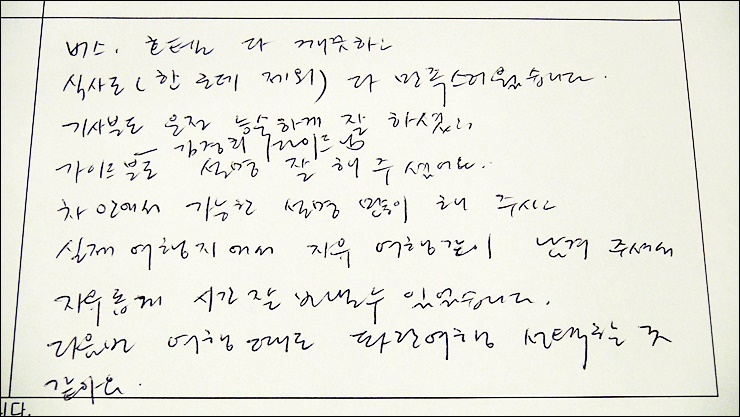 버스, 호텔 다 깨끗하고
식사도 (한 군데 제외) 다 만족스러웠습니다.
기사분도 운전 능숙하게 잘 하셨고
김경희 가이드님
가이드분도 설명 잘 해 주셨어요.
차 안에서 가능한 설명 많이 해 주시고
실제 여행지에서 자유 여행같이 남겨 주셔서
시간 잘 보낼 수 있었습니다.
다음번 여행 때도 파란여행 선택하는 것
같아요.
니다.